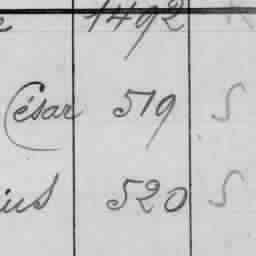 e 1492
César 519 S
ius 520 S